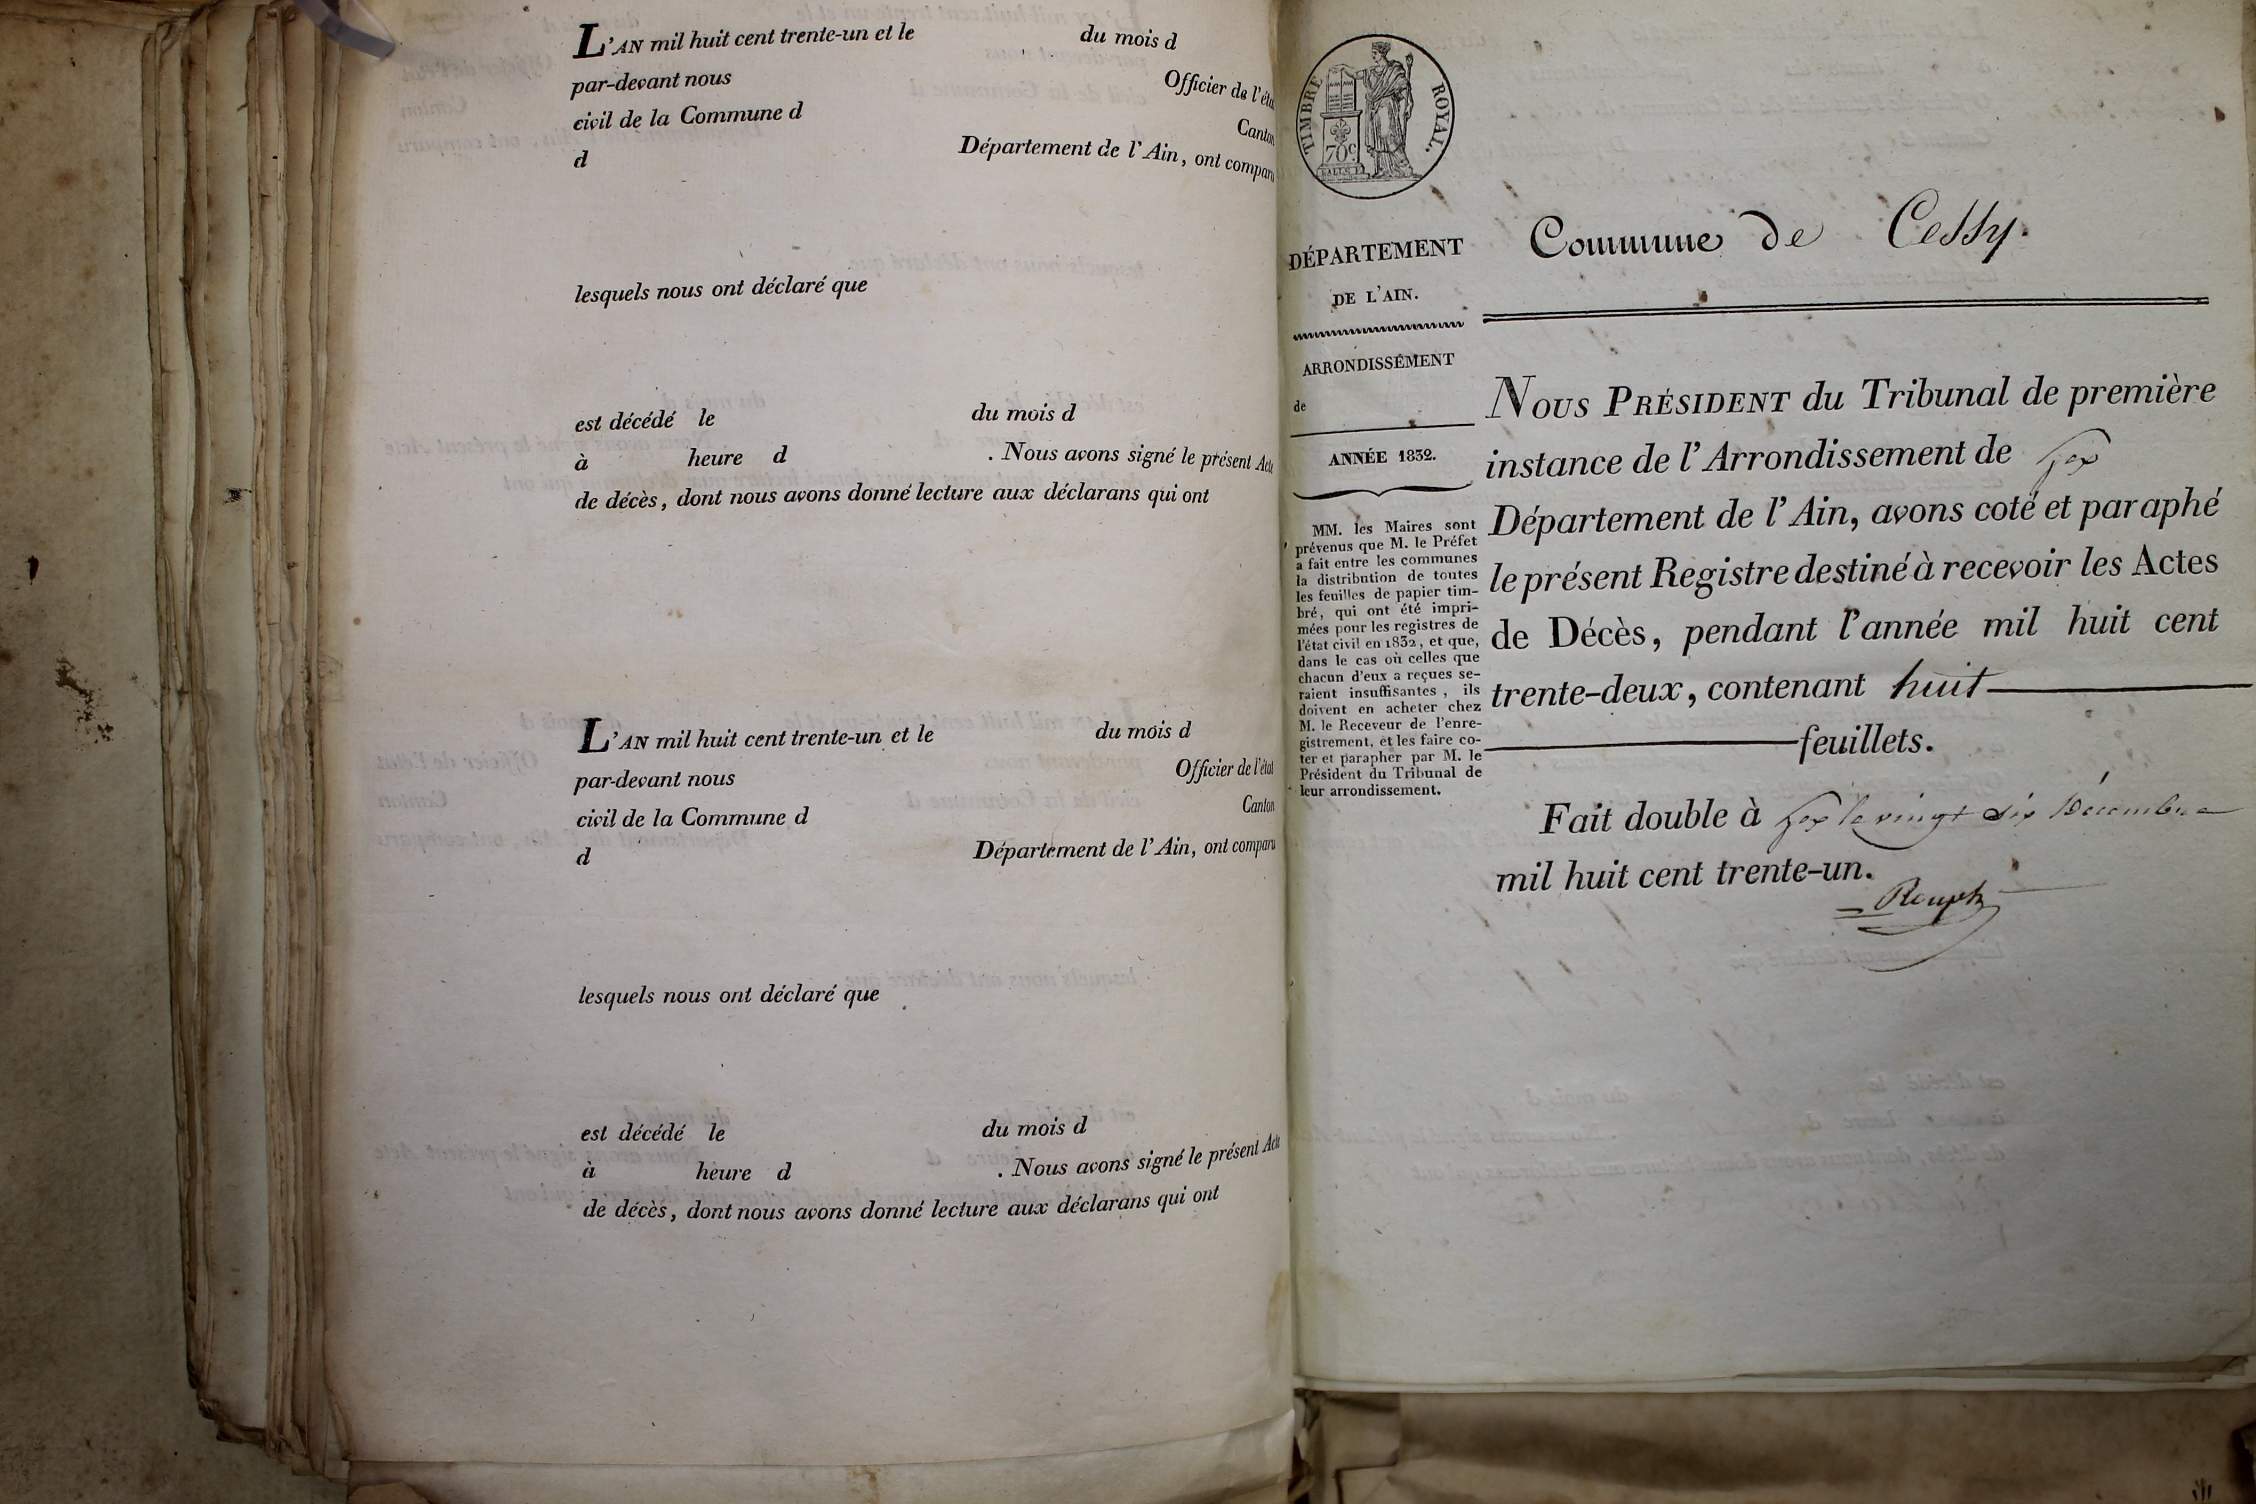 L'AN mil huit cent trente-un et le du mois d
par-devant nous Officier de l'éta
civil de la Commune d Canton
d Département de l'Ain, ont comparu
lesquels nous ont déclaré que
est décédé le du mois d
à heure d . Nous avons signé le présent Acte
de décès, dont nous avons donné lecture aux déclarans qui ont
L'AN mil huit cent trente-un et le du mois d
par-devant nous Officier de l'état
civil de la Commune d Canton
d Département de l'Ain, ont comparu
lesquels nous ont déclaré que
est décédé le du mois d
à heure d . Nous avons signé le présent Acte
de décès, dont nous avons donné lecture aux déclarans qui ont
TIMBRE ROYAL.
70c
DÉPARTEMENT
DE L'AIN.
ARRONDISSEMENT
de
ANNÉE 1832.
MM. les Maires sont
prévenus que M. le Préfet
a fait entre les communes
la distribution de toutes
les feuilles de papier tim-
bré, qui ont été impri-
mées pour les registres de
l'état civil en 1832, et que,
dans le cas où celles que
chacun d'eux a reçues se-
raient insuffisantes, ils
doivent en acheter chez
M. le Receveur de l'enre-
gistrement, et les faire co-
ter et parapher par M. le
Président du Tribunal de
leur arrondissement.
Commune de Cessy.
NOUS PRÉSIDENT du Tribunal de première
instance de l'Arrondissement de Gex
Département de l'Ain, avons coté et paraphé
le présent Registre destiné à recevoir les Actes
de Décès, pendant l'année mil huit cent
trente-deux, contenant huit
feuillets.
Fait double à Gex le vingt six Décembre
mil huit cent trente-un.